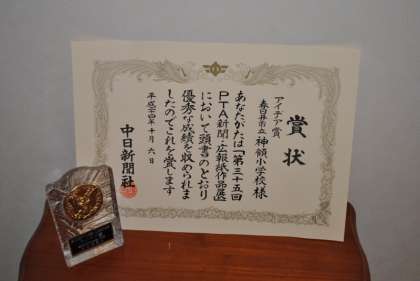 賞状
アイデア賞
春日井市立神領小学校様
あなたがたは「第三十五回
PTA新聞・広報紙作品展」
において頭書のとおり
優秀な成績を収められま
したのでこれを賞します
平成二十四年十月六日
中日新聞社